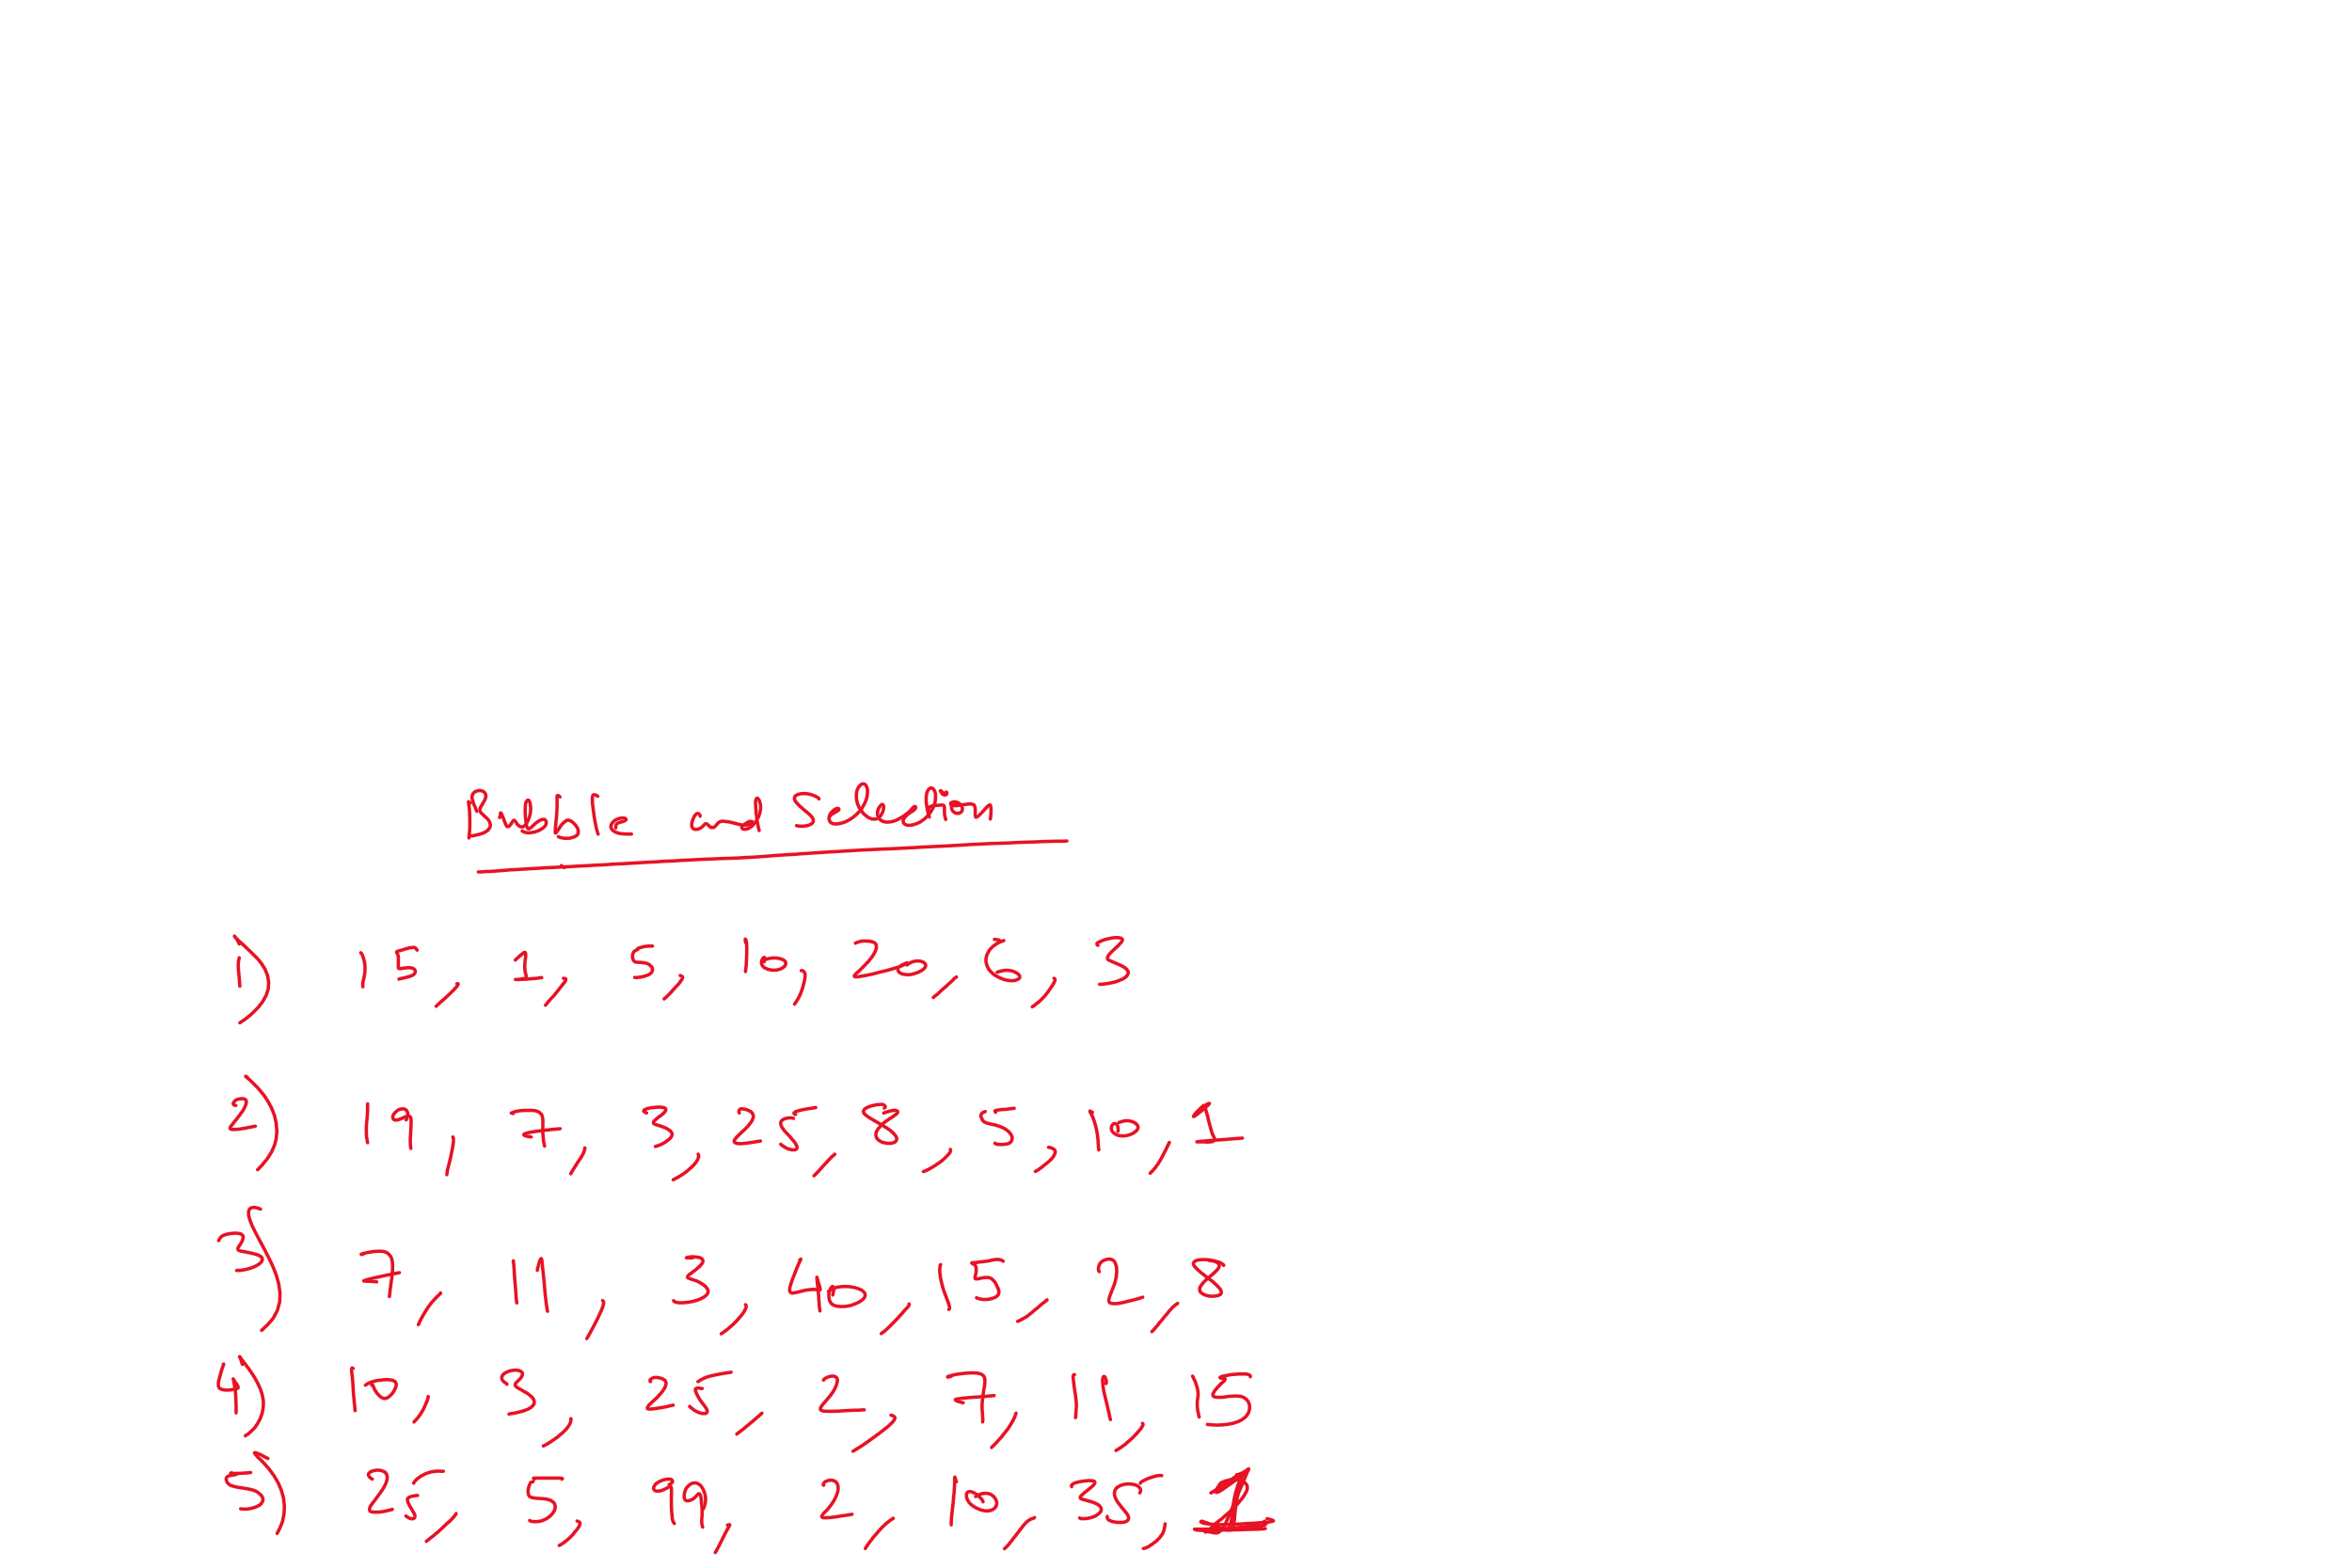 Bubble and Selection
1) 15, 1, 5, 10, 20, 6, 3
2) 19, 7, 3, 25, 8, 5, 10, 1
3) 7, 11, 3, 40, 15, 2, 8
4) 10, 3, 25, 2, 7, 11, 15
5) 25, 5, 99, 2, 10, 35, 1